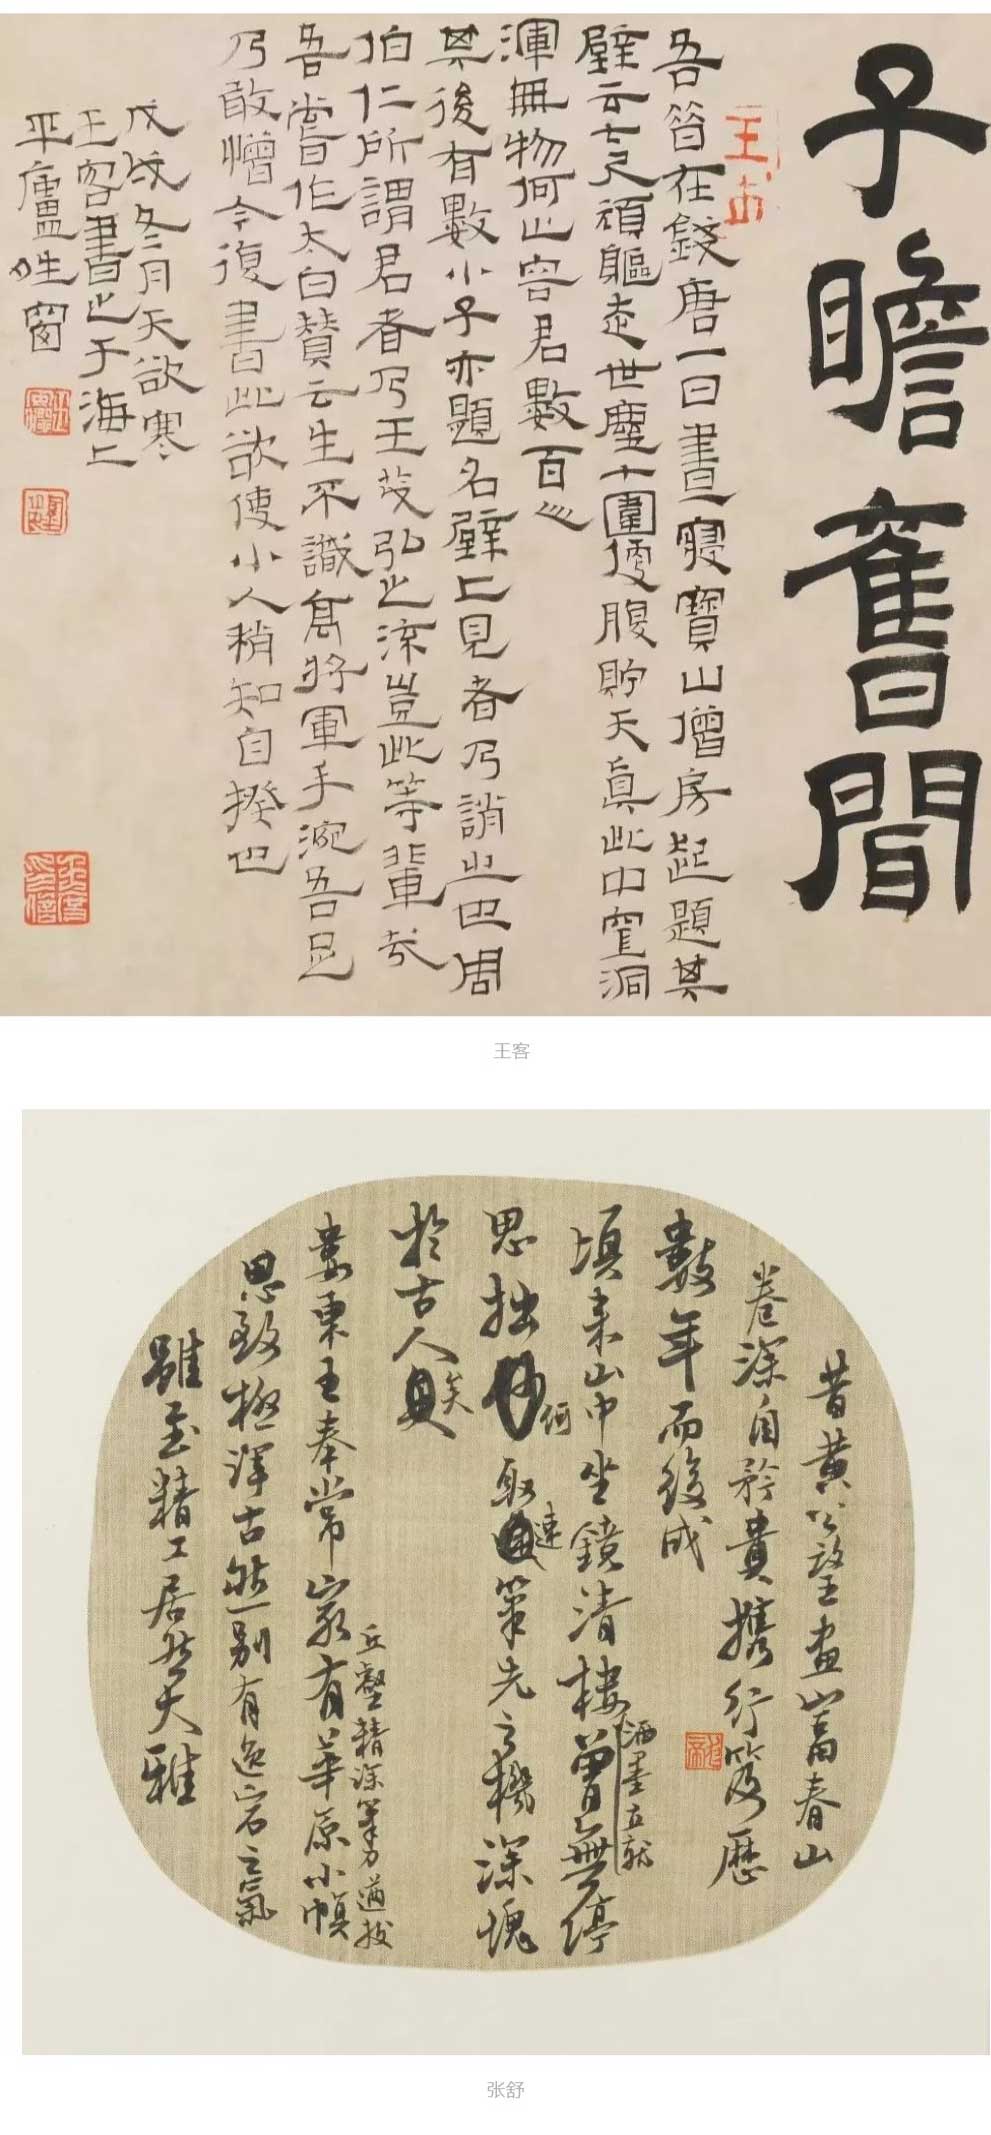 子瞻舊聞
吾昔在錢唐一日晝寢寶山僧房起題其
壁云七尺頑軀走世塵十圍便腹貯天真此中空洞
渾無物何止容君數百人
其後有數小子亦題名壁上見者乃誚之也周
伯仁所謂君者乃王茂弘之流豈此等輩哉
吾嘗作太白贊云生不識高將軍手涴吾足
乃敢憎今復書此欲使小人稍知自揆也
戊戌冬月天欲寒
王客書之于海上
平廬性窗
王客
昔黃公望畫富春山
卷深自矜貴攜行笈歷
數年而後成
頃來山中坐鏡清樓洒墨立就曾無停
思拙何取速筆先之機深愧
於古人矣
婁東王奉常家有華原小幀
丘壑精深筆力遒拔
思致極渾古然別有逸宕之氣
雖至精工居然大雅
张舒